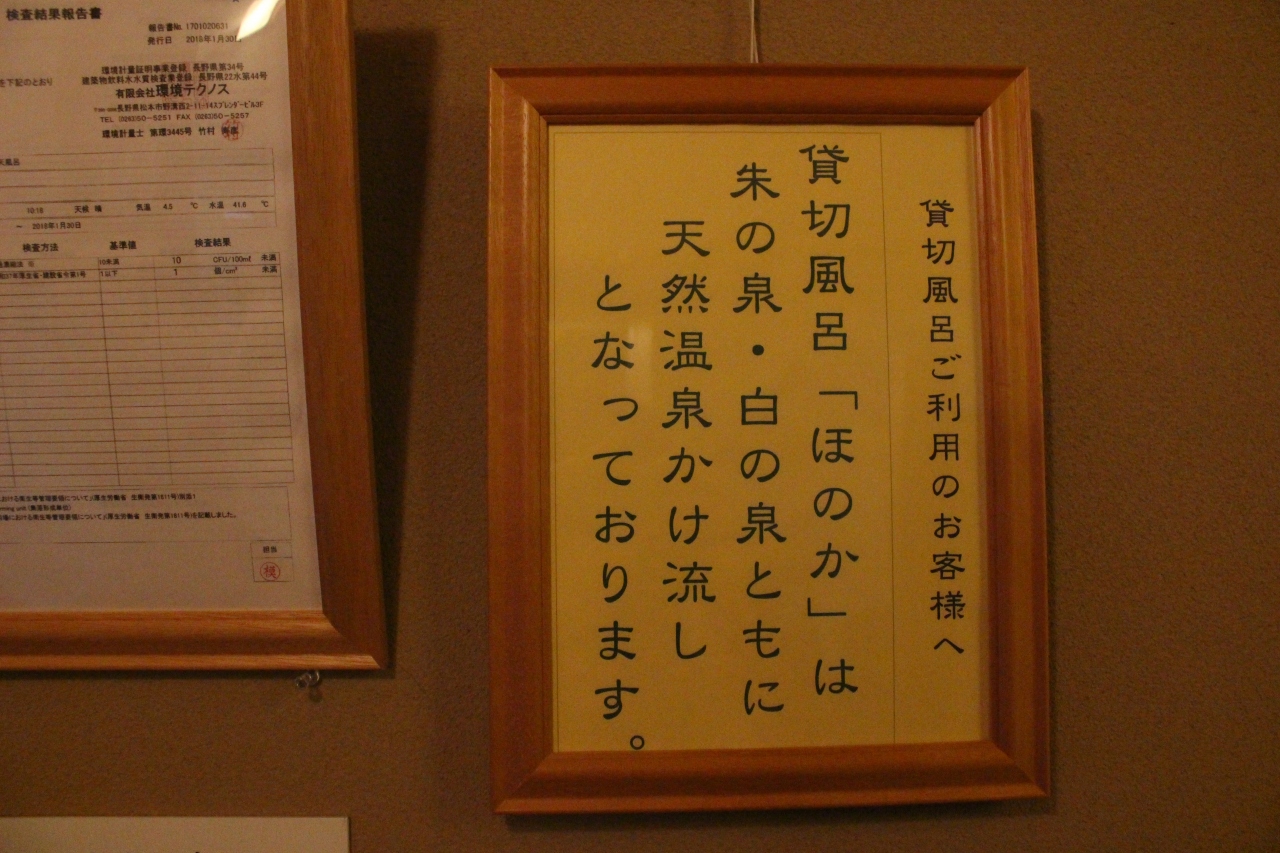 貸切風呂ご利用のお客様へ
貸切風呂「ほのか」は
朱の泉・白の泉ともに
天然温泉かけ流し
となっております。
検査結果報告書
報告書No. 1701020631
発行日 2018年1月30日
環境計量証明事業登録 長野県第34号
を下記のとおり
建築物飲料水水質検査業登録 長野県22水第44号
有限会社環境テクノス
長野県松本市野溝西2-11-14スプレンダービル3F
TEL (0263)50-5251 FAX (0263)50-5257
環境計量士 第環3445号 竹村
10:18 天候 晴 気温 4.5 ℃ 水温 41.6 ℃
～ 2018年1月30日
検査方法 基準値 検査結果
10未満 10 CFU/100mℓ 未満
1以下 1 個/cm³ 未満
担当